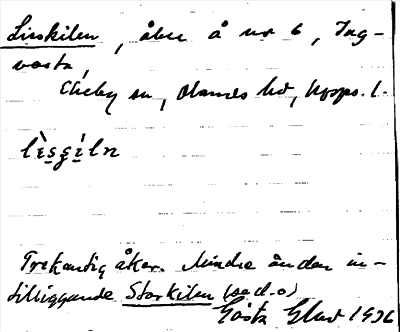 Lisskilen, åker å nr 6, Ing-
vasta,
Ekeby sn, Olands hd, Upps. l.
lìsçíln
Trekantig åker. Mindre än den in-
tilliggande Storkilen (se d.o)
Gösta 1936